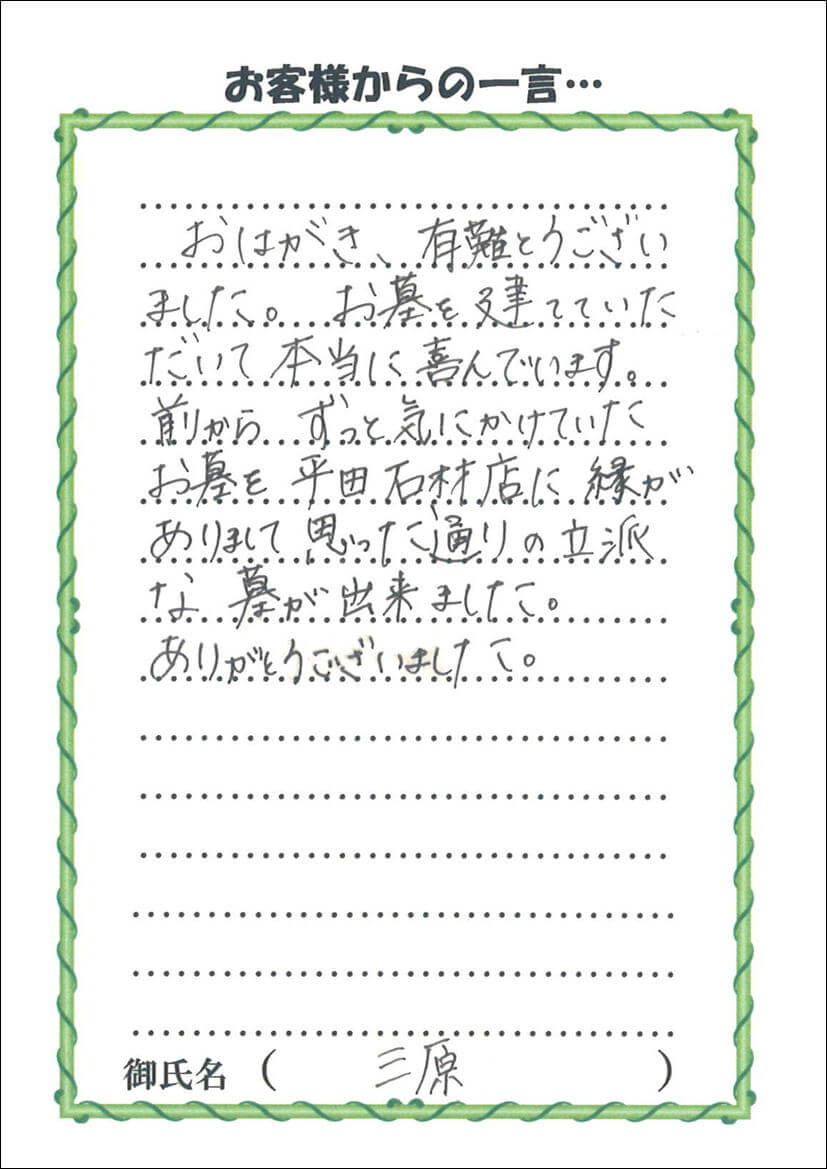 お客様からの一言…
おはがき、有難とうござい
ました。お墓を建てていた
だいて本当に喜んでいます。
前から ずっと気にかけていた
お墓を 平田石材店に 縁が
ありまして 思った通りの立派
な 墓が 出来ました。
ありがとうございました。
御氏名 ( 三原 )